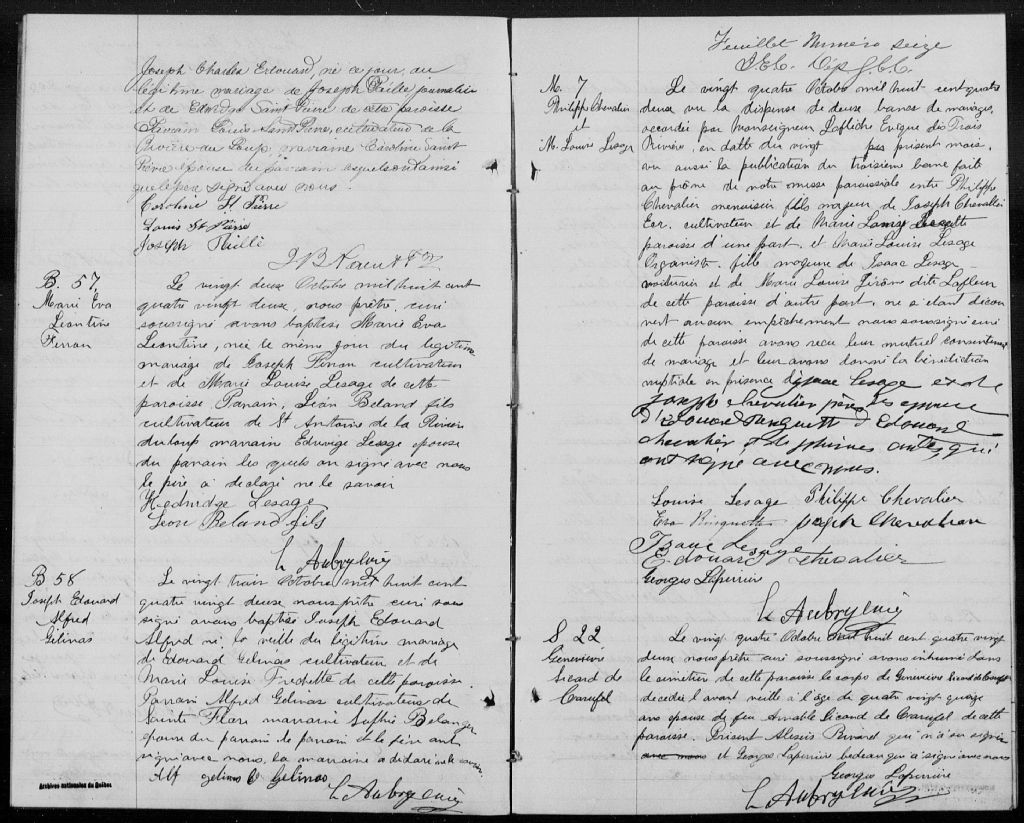 Joseph Charles Edouard, né ce jour, du
légitime mariage de Joseph journalier
et de Saint Pierre de cette paroisse
Parrain Louis Saint Pierre, cultivateur de la
Rivière du Loup, marraine Caroline Saint
Pierre épouse du parrain lesquels ont ainsi
que le père signé avec nous.
Caroline St Pierre
Louis St Pierre
Joseph
B. 57.
Marie Eva
Leontine
Le vingt deux Octobre mil huit cent
quatre vingt deux, nous prêtre, curé
soussigné avons baptisé Marie Eva
Leontine, née le même jour du légitime
mariage de Joseph cultivateur
et de Marie Louise Lesage de cette
paroisse. Parrain, Léon Beland fils
cultivateur de St Antoine de la Rivière
du loup marraine Edwige Lesage épouse
du parrain les quels on signé avec nous
le père a déclaré ne le savoir
Hedwidge Lesage
Leon Beland fils
L Aubry curé
B 58
Joseph Edouard
Alfred
Gelinas
Le vingt trois Octobre mil huit cent
quatre vingt deux nous prêtre curé sous
signé avons baptisé Joseph Edouard
Alfred né la veille du légitime mariage
de Edouard Gelinas cultivateur et de
Marie Louise Fredette de cette paroisse.
Parrain Alfred Gelinas cultivateur de
Sainte Flore marraine Sophie Belanger
épouse du parrain le parrain et le père ont
signé avec nous, la marraine a déclaré ne le savoir
Alf gelina E Gelinas
L Aubry curé
Archives nationales du Québec
Feuillet Numéro seize
M. 7
Philippe Chevalier
et
M. Louise Lesage
Le vingt quatre Octobre mil huit cent quatre
deux vu la dispense de deux bancs de mariage,
accordée par Monseigneur Laflèche Evêque des Trois
Rivière, en datte du vingt du présent mois,
vu aussi la publication du troisième banc faite
au prône de notre messe paroissiale entre Philippe
Chevalier menuisier fils majeur de Joseph Chevalier
Ecr. cultivateur et de Marie Louise de cette
paroisse d'une part, et Marie Louise Lesage
Organiste, fille majeure de Isaac Lesage
voiturier et de Marie Louise Jérôme dite Lafleur
de cette paroisse d'autre part, ne s'étant décou
vert aucun empêchement nous soussigné curé
de cette paroisse avons reçu leur mutuel consentement
de mariage et leur avons donné la bénédiction
nuptiale en présence d'Isaac Lesage et de
Joseph chevalier père des epoux
d'Edouard d'Edouard
chevalier et de plusieurs autres, qui
ont signé avec nous.
Louise Lesage Philippe Chevalier
Eva Ringuette Joseph Chevalier
Isaac Lesage
Edouard chevalier
Georges Laperrière
L Aubry curé
S 22
Geneviève
Sicard de
Carufel
Le vingt quatre Octobre mil huit cent quatre vingt
deux nous prêtre curé soussigné avons inhumé dans
le cimetière de cette paroisse le corps de Geneviève Sicard de Carufel
décédée l'avant veille à l'âge de quatre vingt quatre
ans épouse de feu Amable Sicard de Carufel de cette
paroisse. Présent Alexis qui n'a su signer
avec nous et Georges Laperrière bedeau qui a signé avec nous
Georges Laperrière
L Aubry curé